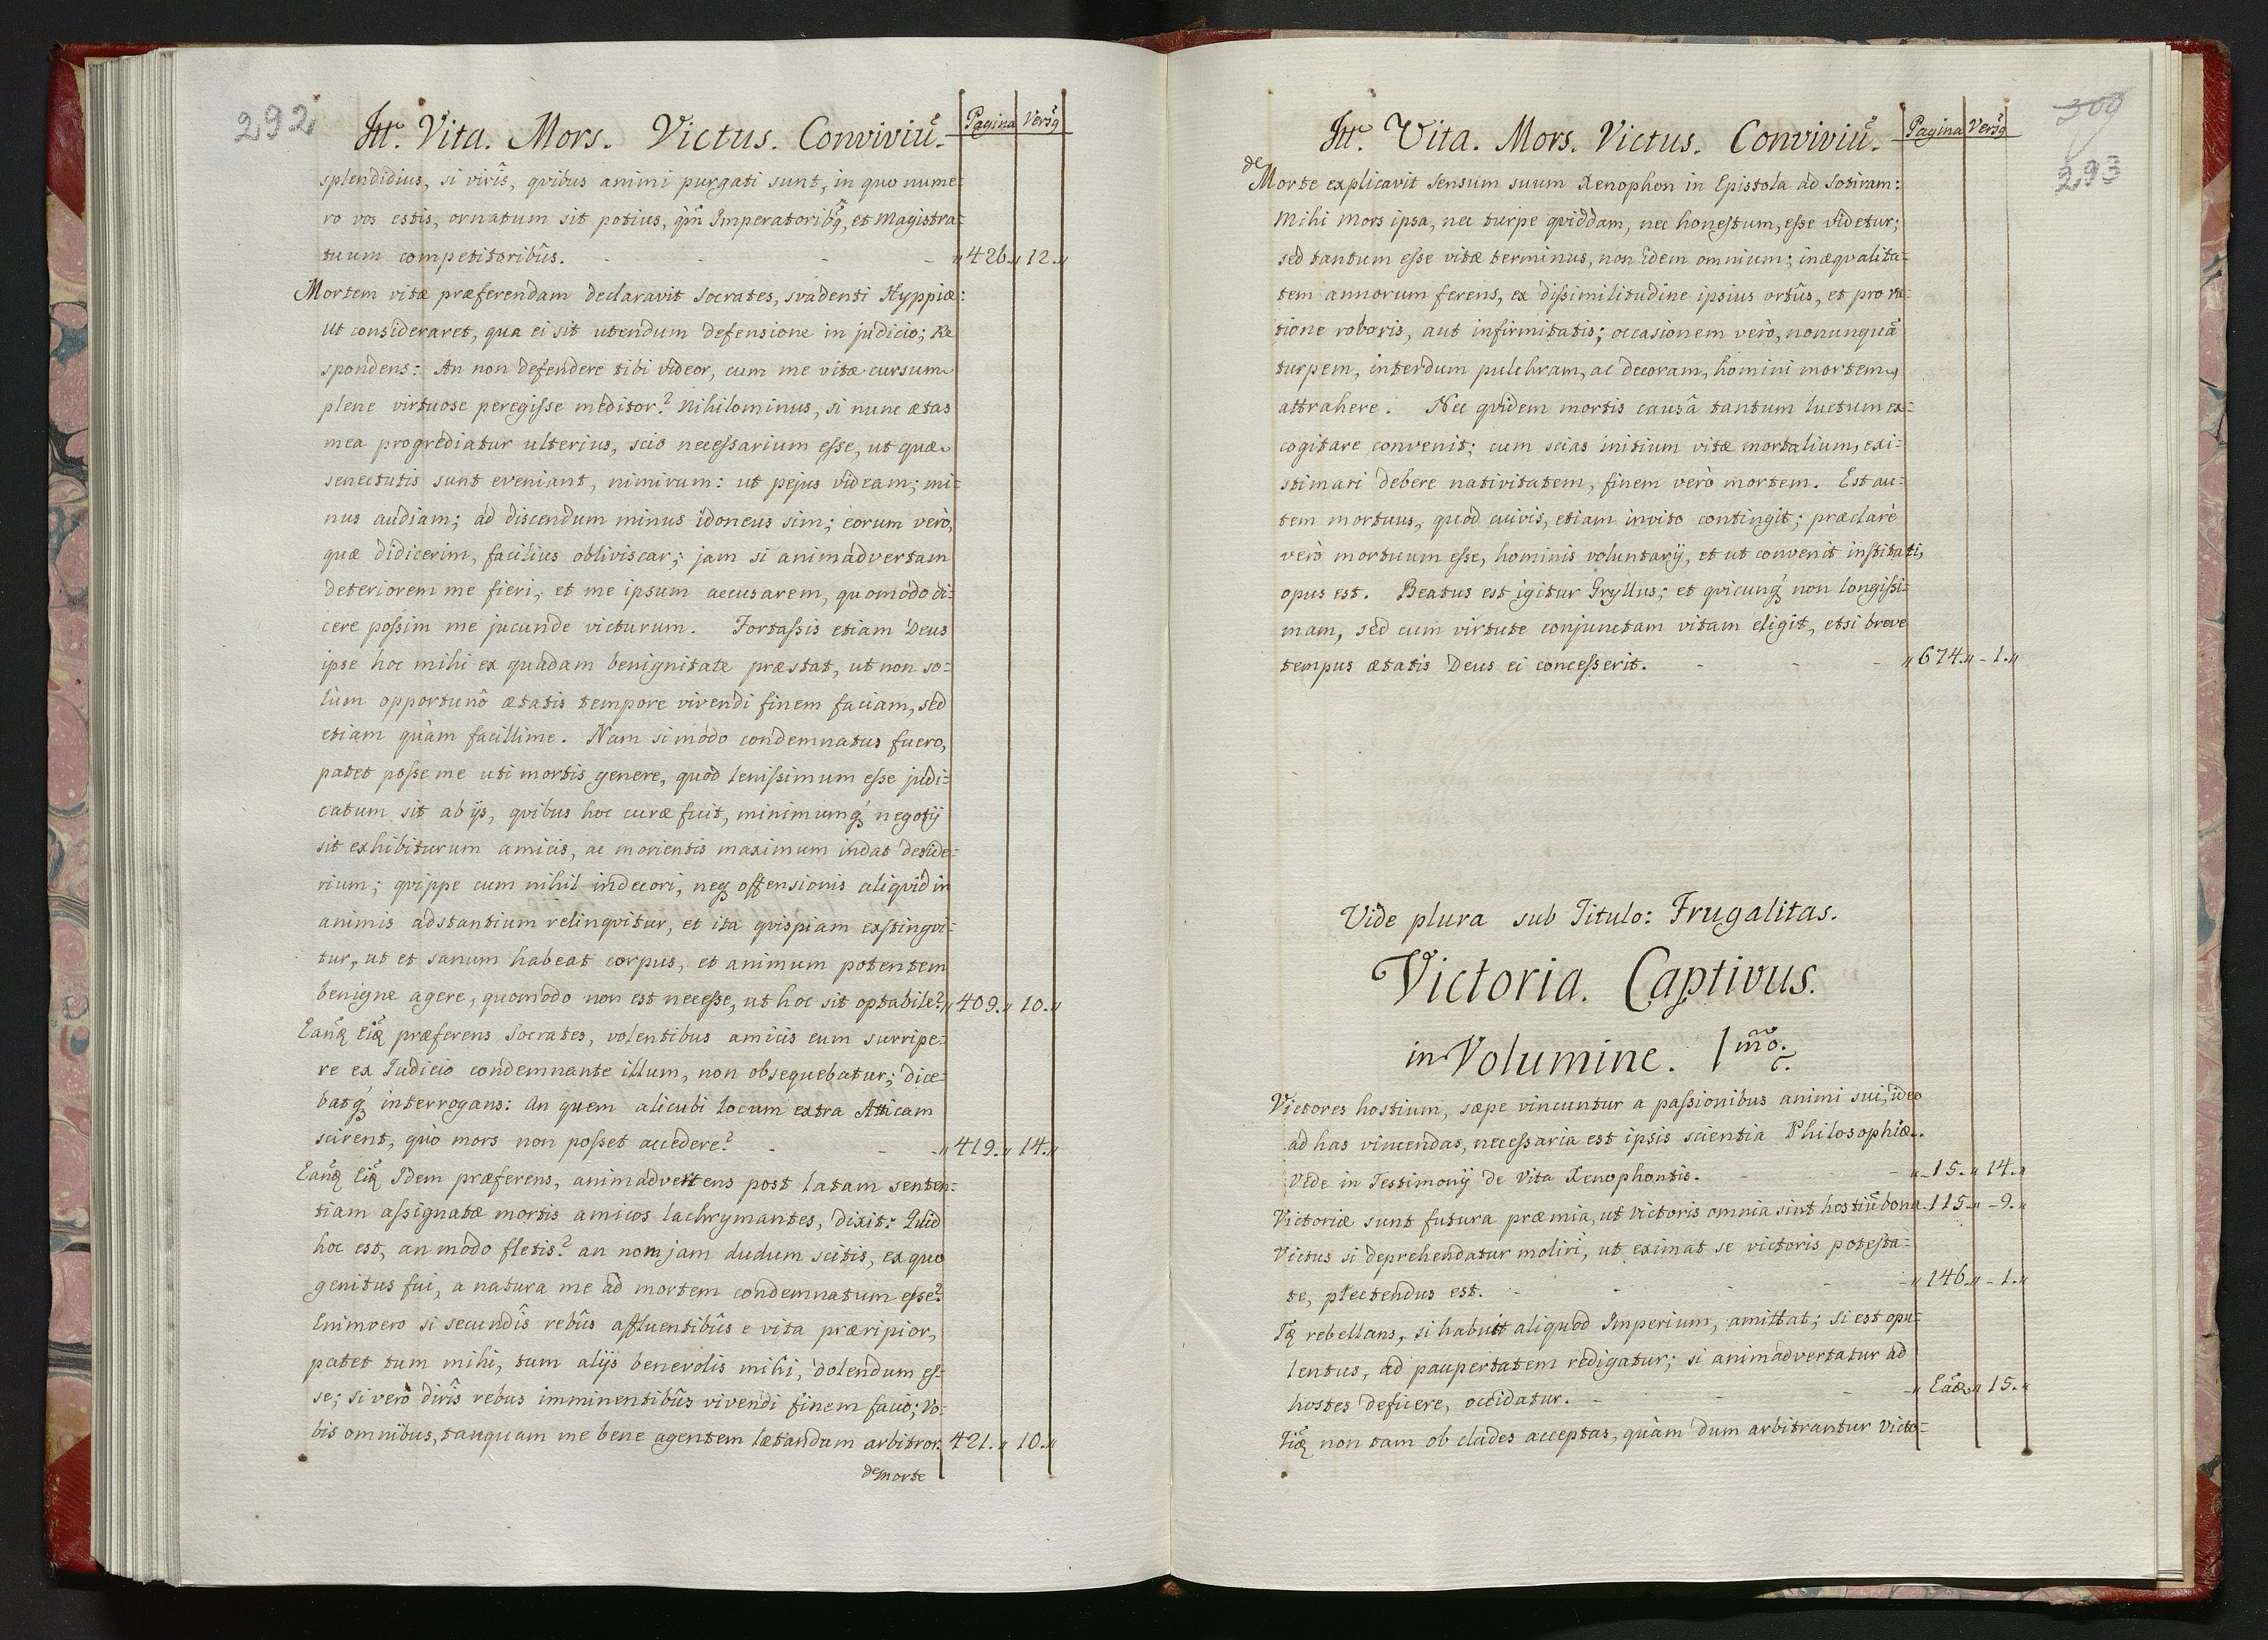 292
Itt. Vita. Mors. Victus. Conviviũ.
Pagina Versꝗ
splendidius, si virîs, qvibus animi purgati sunt, in quo nume=
ro vos estis, ornatum sit potius, qṁ Imperatoribꝗ, et Magistra=
tuum competitoribûs. - - - - „426.„ 12.„
Mortem vitæ præferendam declaravit Socrates, svadenti Hyppiæ:
Ut consideraret, qua ei sit utendum defensione in judicio; Re
spondens: An non defendere tibi videor, cum me vitæ cursum
plene virtuose peregisse meditor? Nihilominus, si nunc ætas
mea progrediatur ulterius, scio necessarium esse, ut quæ
senectutis sunt eveniant, nimirum: ut pejus videam; mi=
nus audiam; ad discendum minus idoneus sim; eorum verò,
quæ didicerim, facilius obliviscar; jam si animadvertam
deteriorem me fieri, et me ipsum accusarem, quomodo di=
cere possim me jucunde victurum. Fortassis etiam Deus
ipse hoc mihi ex quadam benignitate præstat, ut non so=
lùm opportunô ætatis tempore vivendi finem faciam, sed
etiam quàm facillime. Nam si modo condemnatus fuero,
patet posse me uti mortis genere, quod lenissimum esse judi=
catum sit ab ijs, qvibus hoc curæ fuit, minimumꝗ́ negotij
sit exhibiturum amicis, ac morientis maximum indat deside=
rium; qvippe cum nihil indecori, neꝗ offensionis aliqvid in
animis adstantium relinqvitur, et ita qvispiam exstingvi=
tur, ut et sanum habeat corpus, et animum potentem
benigne agere, quomodo non est necesse, ut hoc sit optabile? „409.„ 10.„
Eanꝗ̃ Eiꝗ̃ præferens Socrates, volentibus amicis eum surripe=
re ex Judicio condemnante illum, non obsequebatur; dice=
batꝗ́ interrogans: An quem alicubi locum extra Atticam
scirent, quò mors non posset accedere? - - -„419.„ 14.„
Eanꝗ̃ Eiꝗ̃ Idem præferens, animadvertens post latam senten=
tiam assignatæ mortis amicos lachrymantes, dixit: Quid
hoc est, an modo fletis? an non jam dudum scitis, ex quo
genitus fui, a natura me ad mortem condemnatum esse?
Enimvero si secundîs rebûs affluentibûs e vita præripior,
patet tum mihi, tum alijs benevolis mihi, dolendum es=
se; si verò dirîs rebus imminentibûs vivendi finem facio; Vo=
bis omnibus, tanquam me bene agentem lætandum arbitror. 421.„ 10.„
de morte
300
293
Itt. Vita. Mors. Victus. Conviviũ.
Pagina Versꝗ
de Morte explicavit sensum suum Xenophon in Epistola ad Sotiram:
Mihi Mors ipsa, nec turpe qviddam, nec honestum, esse videtur;
sed tantum esse vitæ terminus, non idem omnium; inæqvalita=
tem annorum ferens, ex dissimilitudine ipsius ortûs, et pro ra=
tione roboris, aut infirmitatis; occasionem verò, nonunquã
turpem, interdum pulchram, ac decoram, homini mortem
attrahere. Nec qvidem mortis causâ tantum luctum ex=
cogitare convenit; cum scias initium vitæ mortalium, exi=
stimari debere nativitatem, finem verò mortem. Est au=
tem mortuus, quod cuivis, etiam invito contingit; præclarè
verò mortuum esse, hominis voluntarij, et ut convenit institati,
opus est. Beatus est igitur Gryllus; et qvicunꝗ́ non longissi=
mam, sed cum virtute conjunctam vitam eligit, etsi breve
tempus ætatis Deus ei concesserit. - - - „674.„ - 1.„
Vide plura sub Titulo: Frugalitas.
Victoria. Captivus.
in Volumine. 1mõ.
Victores hostium, sæpe vincuntur a passionibus animi sui, ideo
ad has vincendas, necessaria est ipsis scientia Philosophiæ.
Vide in Testimonij de Vita Xenophontis. - - „15.„ 14.„
Victoriæ sunt futura præmia, ut victoris omnia sint hostiũ bona. 115.„ - 9.„
Victus si deprehendatur moliri, ut eximat se victoris potesta=
te, plectendus est. - - - -„146.„ - 1.„
Iꝗ̃ rebellans, si habuit aliquod Imperium, amittat; si est opu=
lentus, ad paupertatem redigatur; si animadvertatur ad
hostes deficere, occidatur. - - - „Eãd„ 15.„
Iiꝗ̃ non tam ob clades acceptas, quàm dum arbitrantur victo=